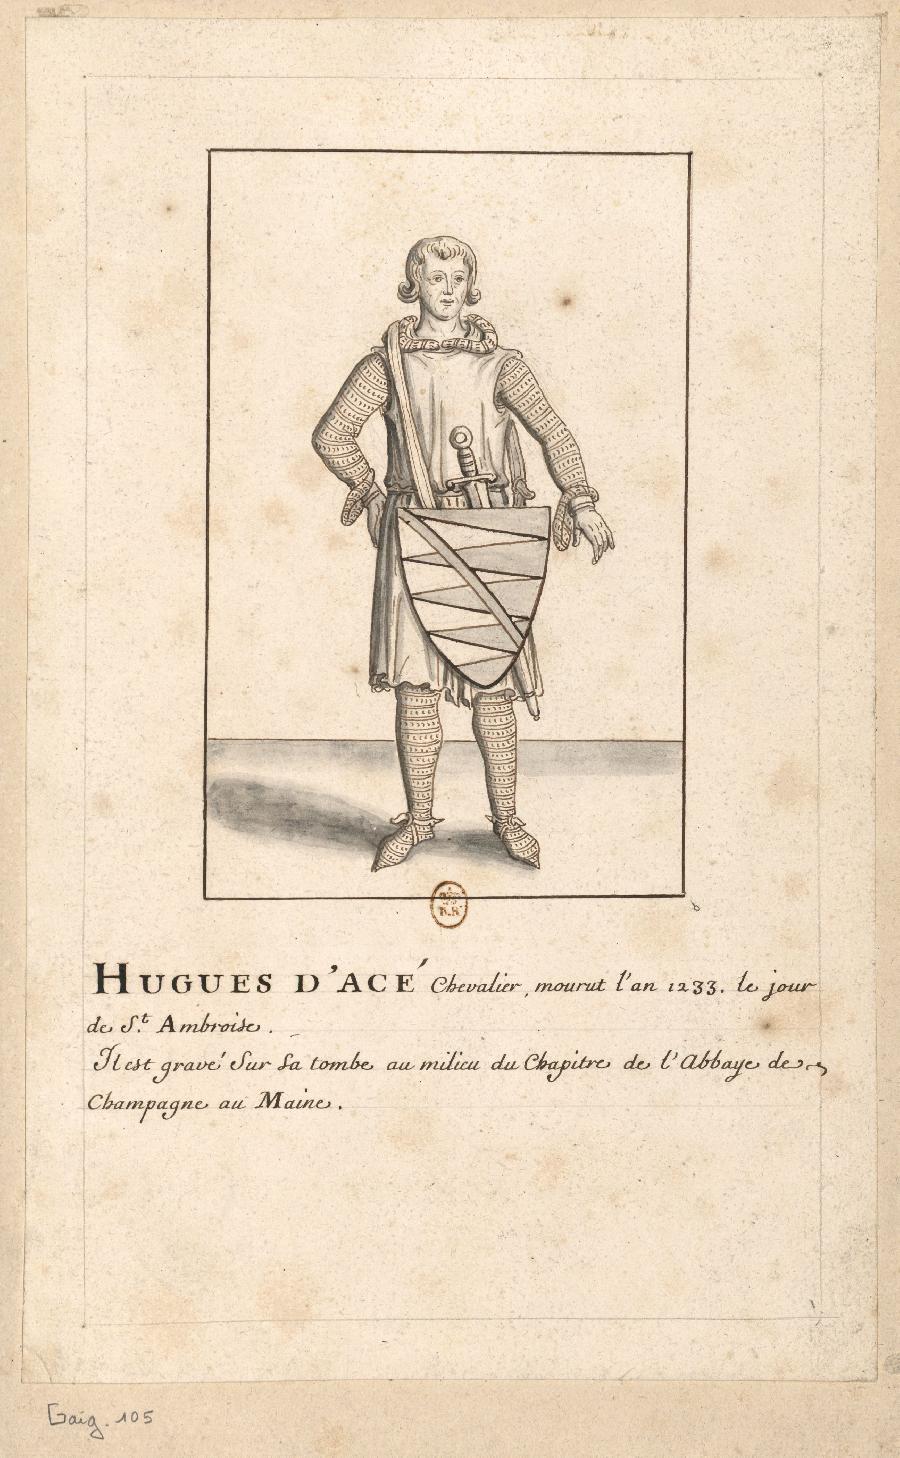 HUGUES D'ACÉ Chevalier, mourut l'an 1233. le jour
de S.t Ambroise.
Il est gravé Sur Sa tombe au milieu du Chapitre de l'Abbaye de
Champagne au Maine.
Gaig. 105